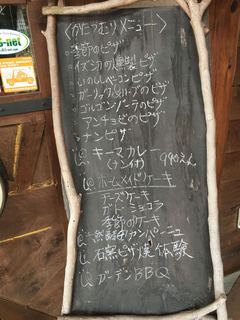 〈かたつむりメニュー〉
・季節のピザ
・イブシカの燻製ピザ
・いのししベーコンピザ
・ガーリック&ハーブのピザ
・ゴルゴンゾーラのピザ
・アンチョビのピザ
・ナンピザ
キーマカレー 990えん
(ナン付)
ホームメイドケーキ
チーズケーキ
ガトーショコラ
季節のケーキ
石窯ピザ 体験
ガーデンBBQ